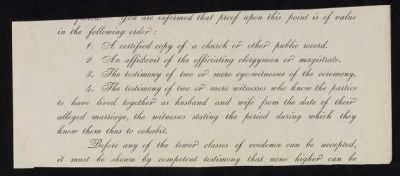 You are informed that proof upon this point is of value
in the following order:
1. A certified copy of a church or other public record.
2. An affidavit of the officiating clergyman or magistrate.
3. The testimony of two or more eye-witnesses of the ceremony.
4. The testimony of two or more witnesses who know the parties
to have lived together as husband and wife from the date of their
alleged marriage, the witnesses stating the period during which they
knew them thus to cohabit.
Before any of the lower classes of evidence can be accepted,
it must be shown by competent testimony that none higher can be